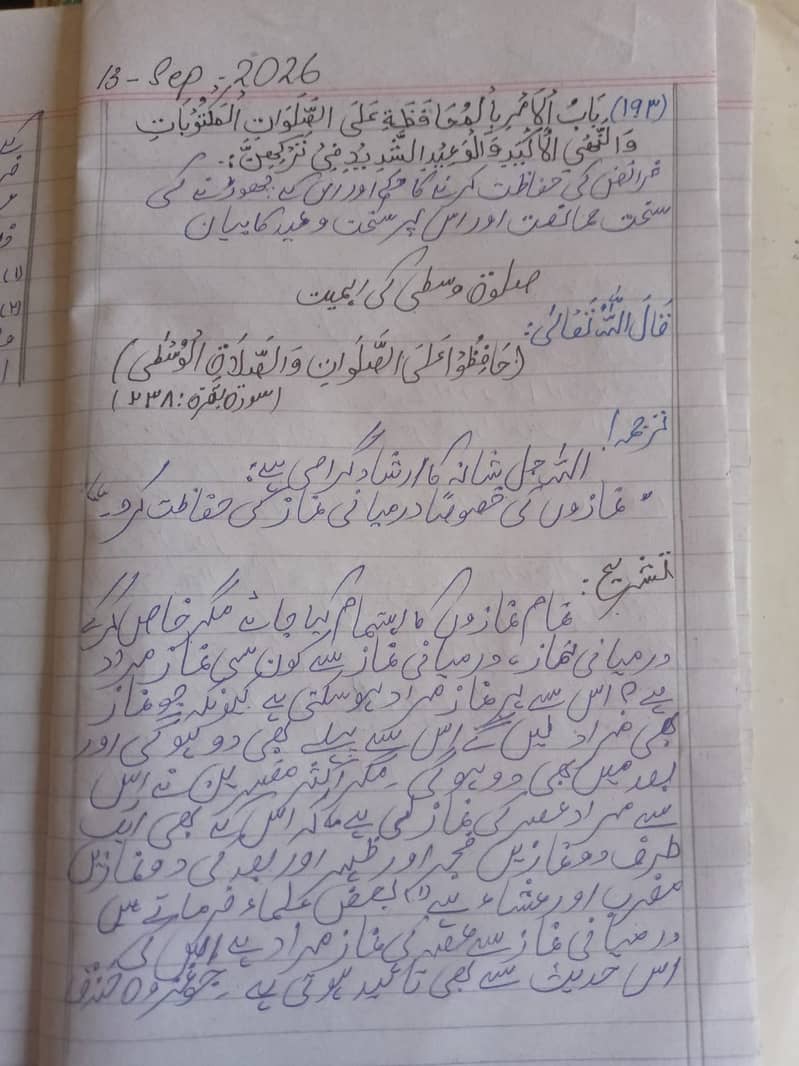 13-Sep,-2026
(١٩٣) بَابُ الْأَمْرِ بِالْمُحَافَظَةِ عَلَى الصَّلَوَاتِ الْمَكْتُوبَاتِ
وَالنَّهْيِ الْأَكِيْدِ وَالْوَعِيْدِ الشَّدِيْدِ فِيْ تَرْكِهِنَّ:
فرائض کی حفاظت کرنے کا حکم اور اس کے چھوڑنے کی
سخت ممانعت اور اس پر سخت وعید کا بیان
صلوۃ وسطی کی اہمیت
قَالَ اللّٰهُ تَعَالٰى:
(حَافِظُوْا عَلَى الصَّلَوَاتِ وَالصَّلَاةِ الْوُسْطٰى)
(سورة بقرة: ٢٣٨)
ترجمہ!
اللہ جل شانہ کا ارشاد گرامی ہے:
"نمازوں کی خصوصًا درمیانی نماز کی حفاظت کرو۔"
تشریح:
تمام نمازوں کا اہتمام کیا جائے مگر خاص کرکے
درمیانی نماز، درمیانی نماز سے کون سی نماز مراد
ہے؟ اس سے ہر نماز مراد ہو سکتی ہے کیونکہ جو نماز
بھی مراد لیں گے اس سے پہلے بھی دو ہو گی اور
بعد میں بھی دو ہو گی۔ مگر اکثر مفسرین نے اس
سے مراد عصر کی نماز لی ہے کہ اس کے بھی ایک
طرف دو نمازیں فجر اور ظہر اور بعد کی دو نمازیں
مغرب اور عشاء ہے (١) بعض علماء فرماتے ہیں
درمیانی نماز سے عصر کی نماز مراد ہے اس کی
اس حدیث سے بھی تائید ہوتی ہے۔ جو غزوہ خندق